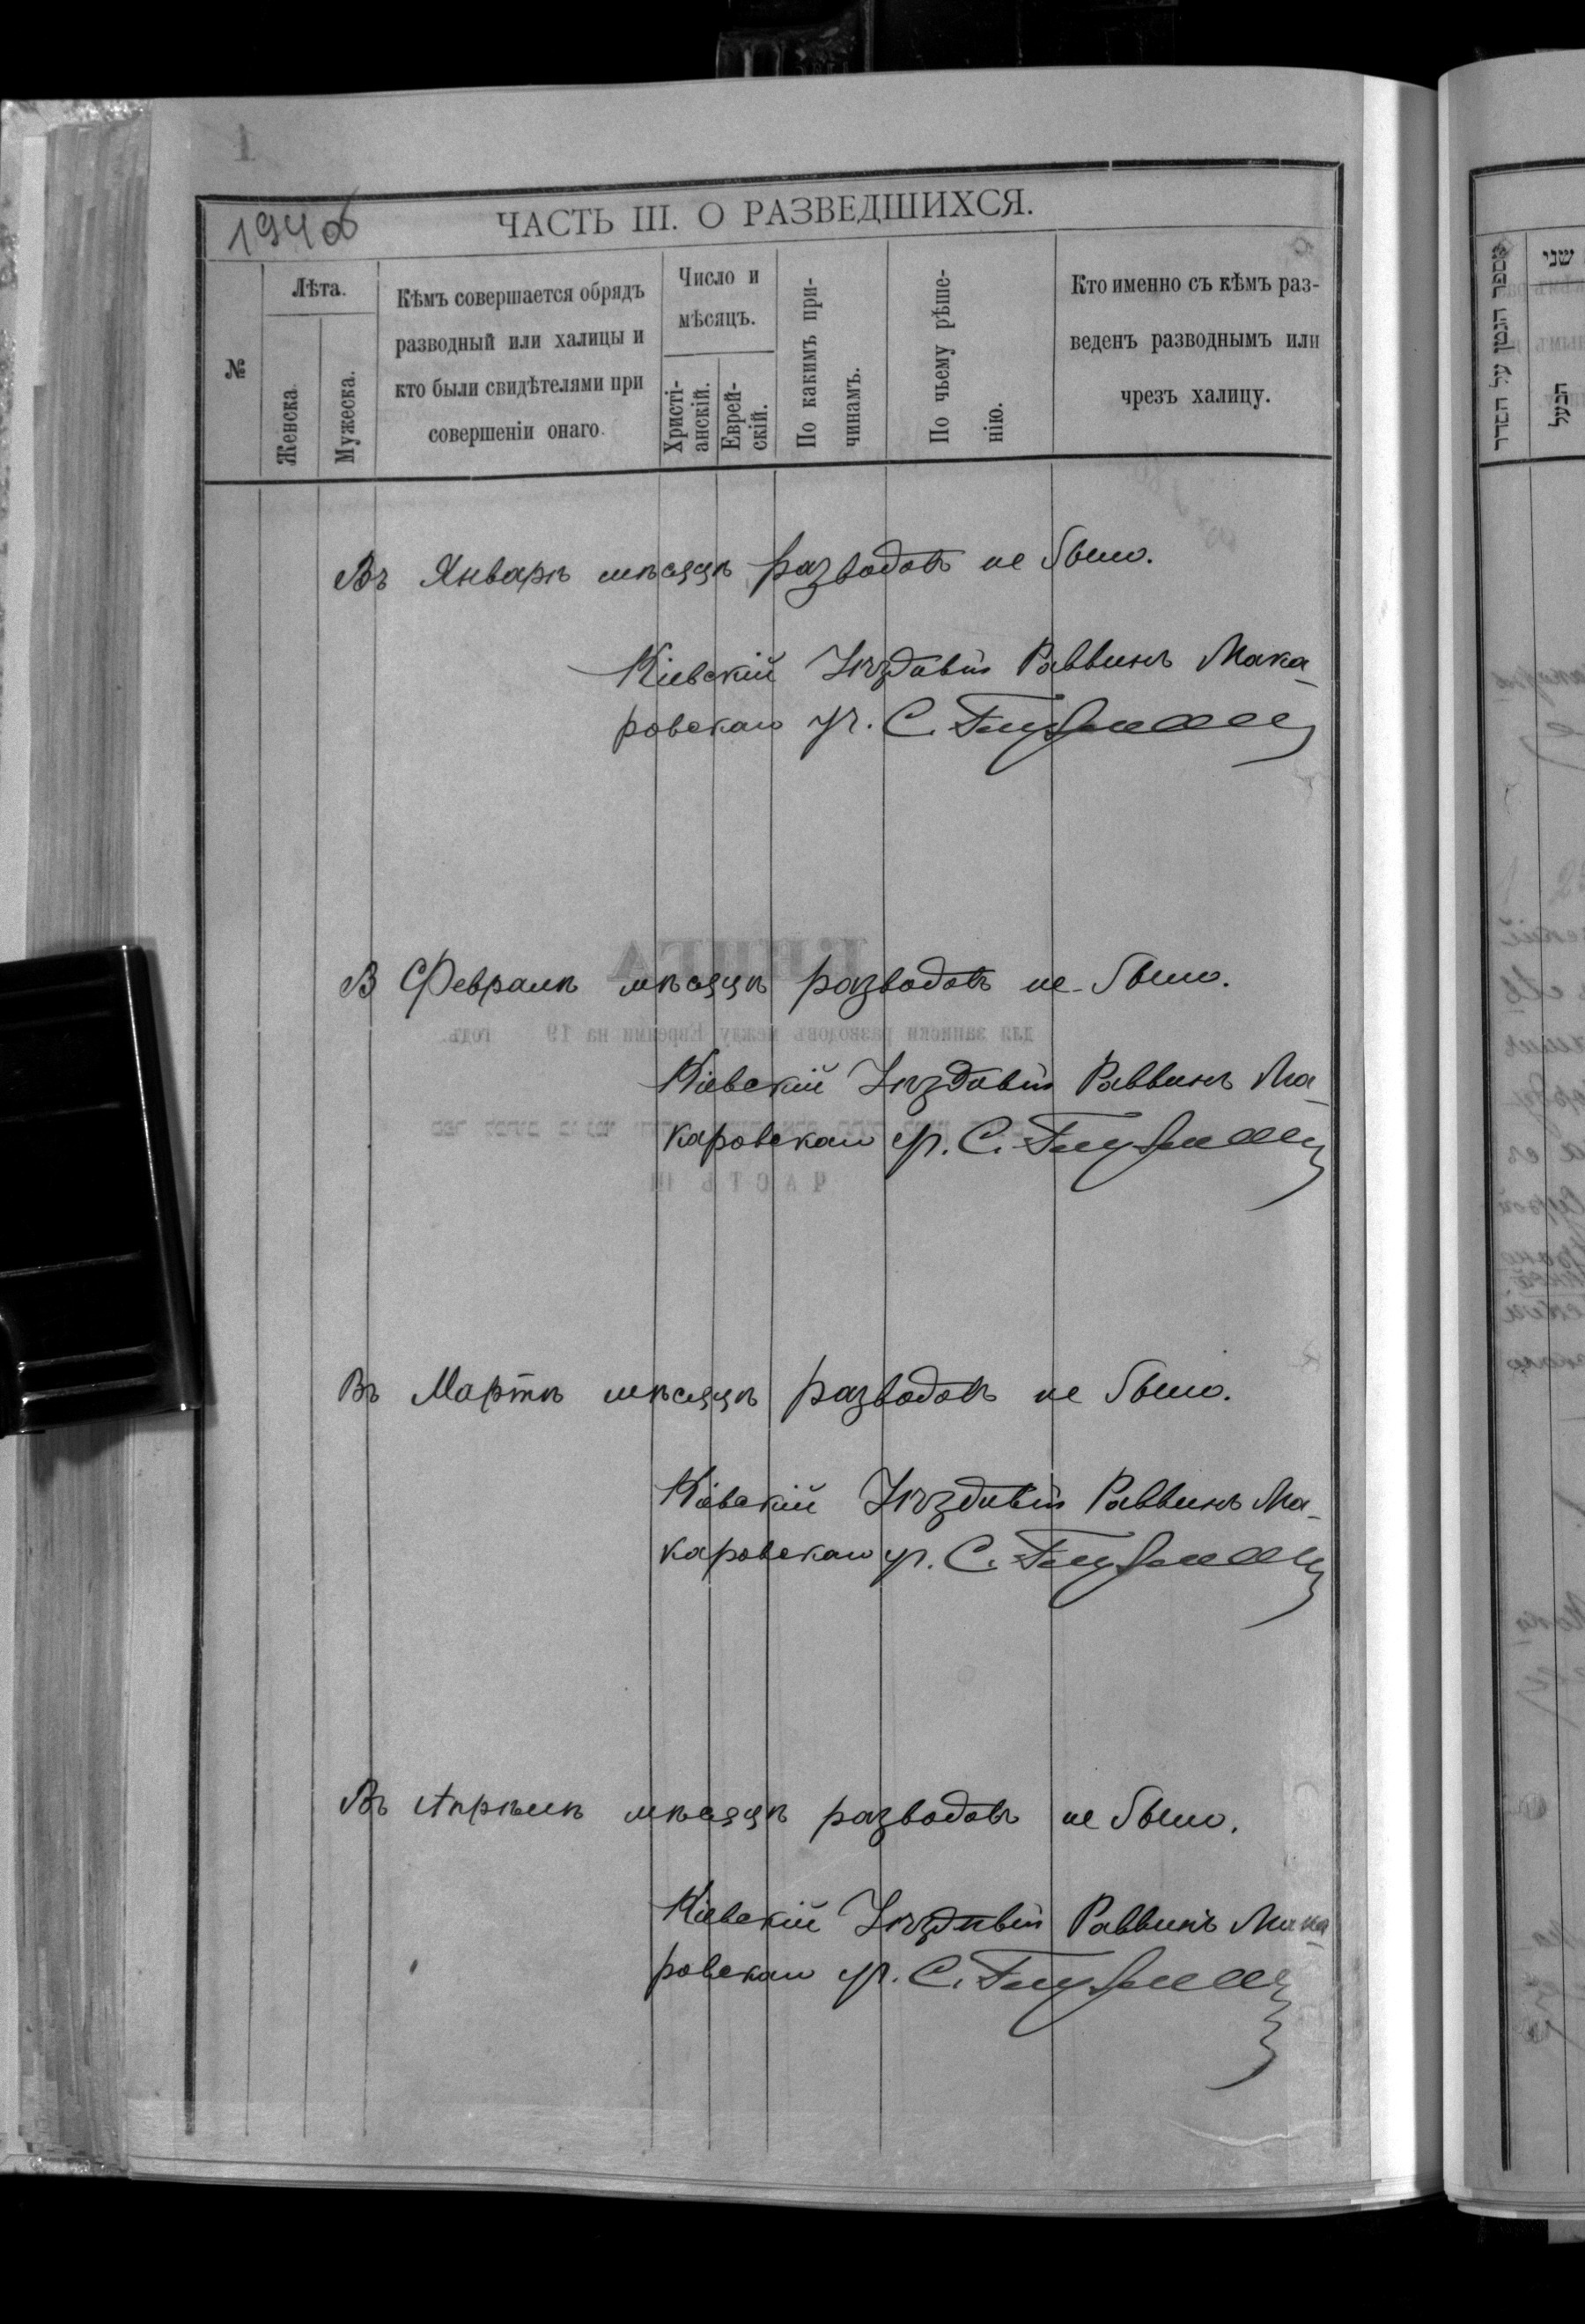 1
194об
ЧАСТЬ III. О РАЗВЕДШИХСЯ.
№
Лѣта.
Женска
Мужеска.
Кѣмъ совершается обрядъ
разводный или халицы и
кто были свидѣтелями при
совершеніи онаго.
Число и
мѣсяцъ.
Христі-
анскій.
Еврей-
скій.
По какимъ при-
чинамъ.
По чьему рѣше-
нію.
Кто именно съ кѣмъ раз-
веденъ разводнымъ или
чрезъ халицу.
Въ Январѣ мѣсяцѣ разводовъ не было.
Кіевскій Уѣздный Раввинъ Мака-
ровскаго уч. С.
В Февралѣ мѣсяцѣ разводовъ не было.
Кіевскій Уѣздный Раввинъ Ма-
каровскаго уч. С.
Въ Мартѣ мѣсяцѣ разводовъ не было.
Кіевскій Уѣздный Раввинъ Ма-
каровскаго уч. С.
Въ Апрѣлѣ мѣсяцѣ разводовъ не было.
Кіевскій Уѣздный Раввинъ Мака-
ровскаго уч. С.
מספר הגטין על הסדר
שני
הבעל